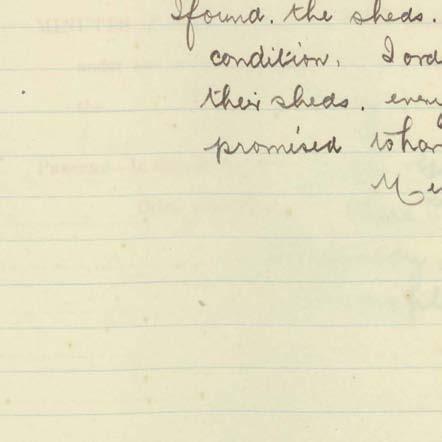 I found. the sheds.
condition, I ord
their sheds. every
promised to har
Me